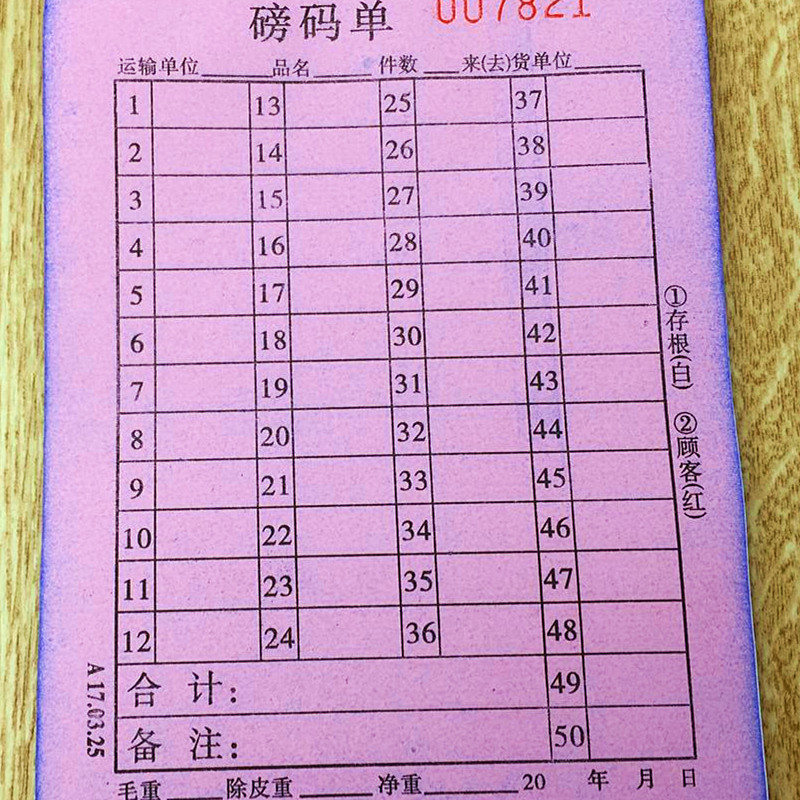 磅码单 007821
运输单位 品名 件数 来(去)货单位
1 13 25 37
2 14 26 38
3 15 27 39
4 16 28 40
5 17 29 41
6 18 30 42
7 19 31 43
8 20 32 44
9 21 33 45
10 22 34 46
11 23 35 47
12 24 36 48
合计: 49
备注: 50
毛重 除皮重 净重 20 年 月 日
①存根(白) ②顾客(红)
A17.03.25